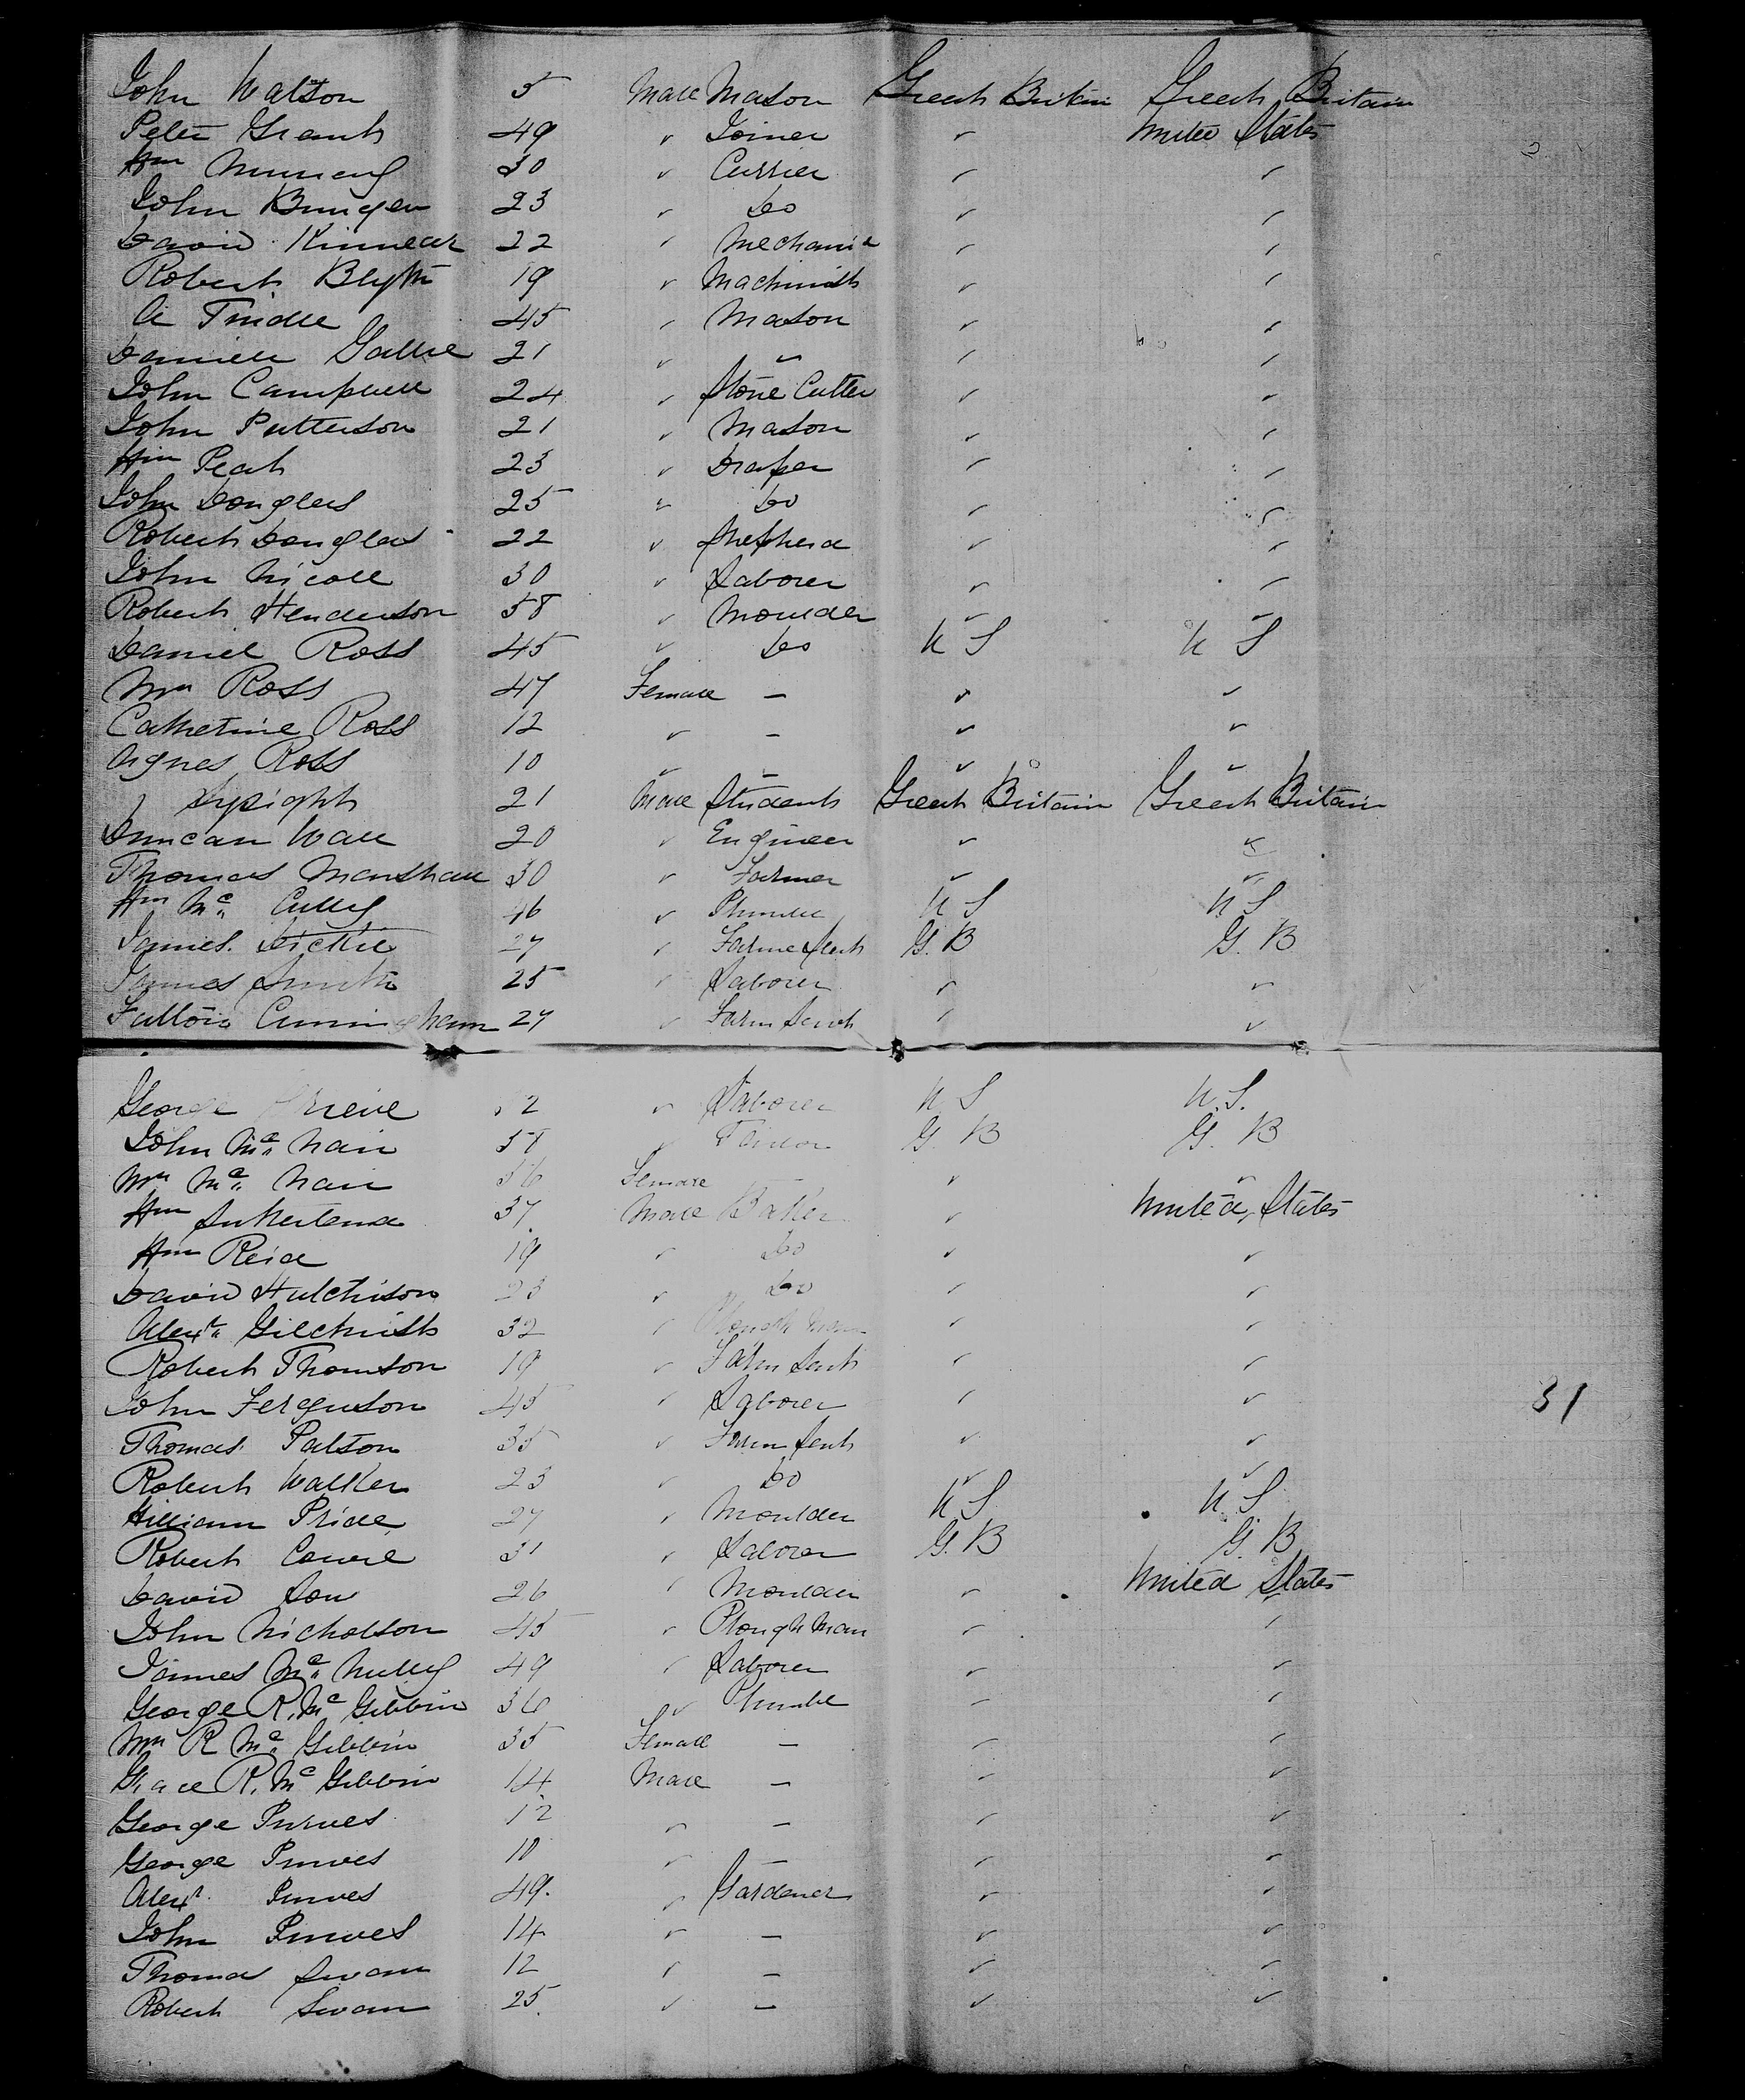 John Watson 5 Male Mason Great Britain Great Britain
Peter Grant 49 " Joiner " United States
Wm Murray 30 " Currier " "
John Bungen 23 " Do " "
David Kinnear 22 " Mechanic " "
Robert Blyth 19 " Machinist " "
A Tindle 45 " Mason " "
Daniel Gallie 21 " " " "
John Campbell 24 " Stone Cutter " "
John Patterson 21 " Mason " "
Wm Peat 23 " Draper " "
John Douglas 25 " Do " "
Robert Douglas 22 " Shepherd " "
John Nicoll 30 " Laborer " "
Robert Henderson 58 " Moulder " "
Daniel Ross 45 " Do U S U S
Mrs Ross 47 Female — " "
Catherine Ross 12 " — " "
Agnes Ross 10 " — " "
21 Male Student Great Britain Great Britain
Duncan Wall 20 " Engineer " "
Thomas Marshall 30 " Farmer " "
Wm Mc Cully 46 " Plumber U S U S
James Dickie 27 " Farm Servt G. B G. B
James Smith 25 " Laborer " "
Fulton Cunningham 27 " Farm Servt " "
George Grieve 2 " Laborer U S U. S.
John Mc Nair 37 " Tailor G. B G. B
Mrs Mc Nair 36 Female " "
Wm Sutherland 37 Male Baker " United States
Wm Reid 19 " Do " "
David Hutchison 23 " Do " "
Alexr Gilchrist 32 " Plough man " "
Robert Thomson 19 " Farm Servt " "
John Ferguson 45 " Laborer " "
Thomas Patson 35 " Farm Servt " "
Robert Walker 23 " Do " "
William Pride 27 " Moulder U S U. S
Robert Cowie 31 " Laborer G. B G. B
David Low 26 " Moulder " United States
John Nicholson 45 " Ploughman " "
James Mc Nully 49 " Laborer " "
George R. Mc Gibbin 36 " Plumber " "
Mrs R Mc Gibbin 35 Female — " "
Grace R. Mc Gibbin 14 Male — " "
George Purves 12 " — " "
George Purves 10 " — " "
Alexr Purves 49. " Gardener " "
John Purves 14 " — " "
Thomas Swan 12 " — " "
Robert Swan 25. " — " "
31